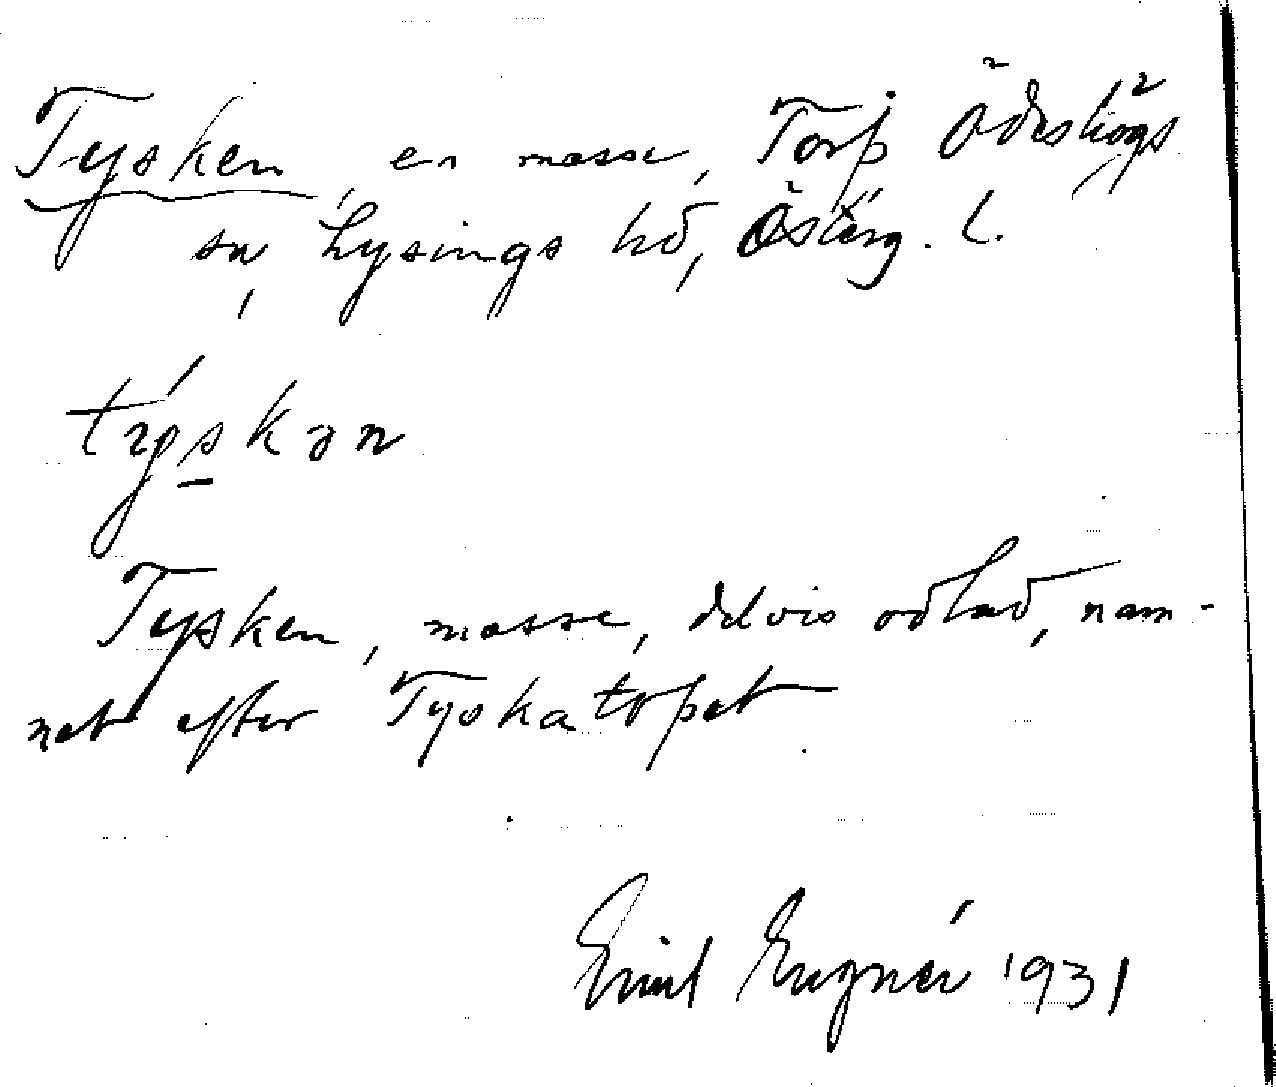 Tysken, en mosse, Torp Ödeshögs
sn, Lysings hd, Österg. l.
týskən
Tysken, mosse, delvis odlad, nam-
net efter Tyskatorpet
Emil Engnér 1931